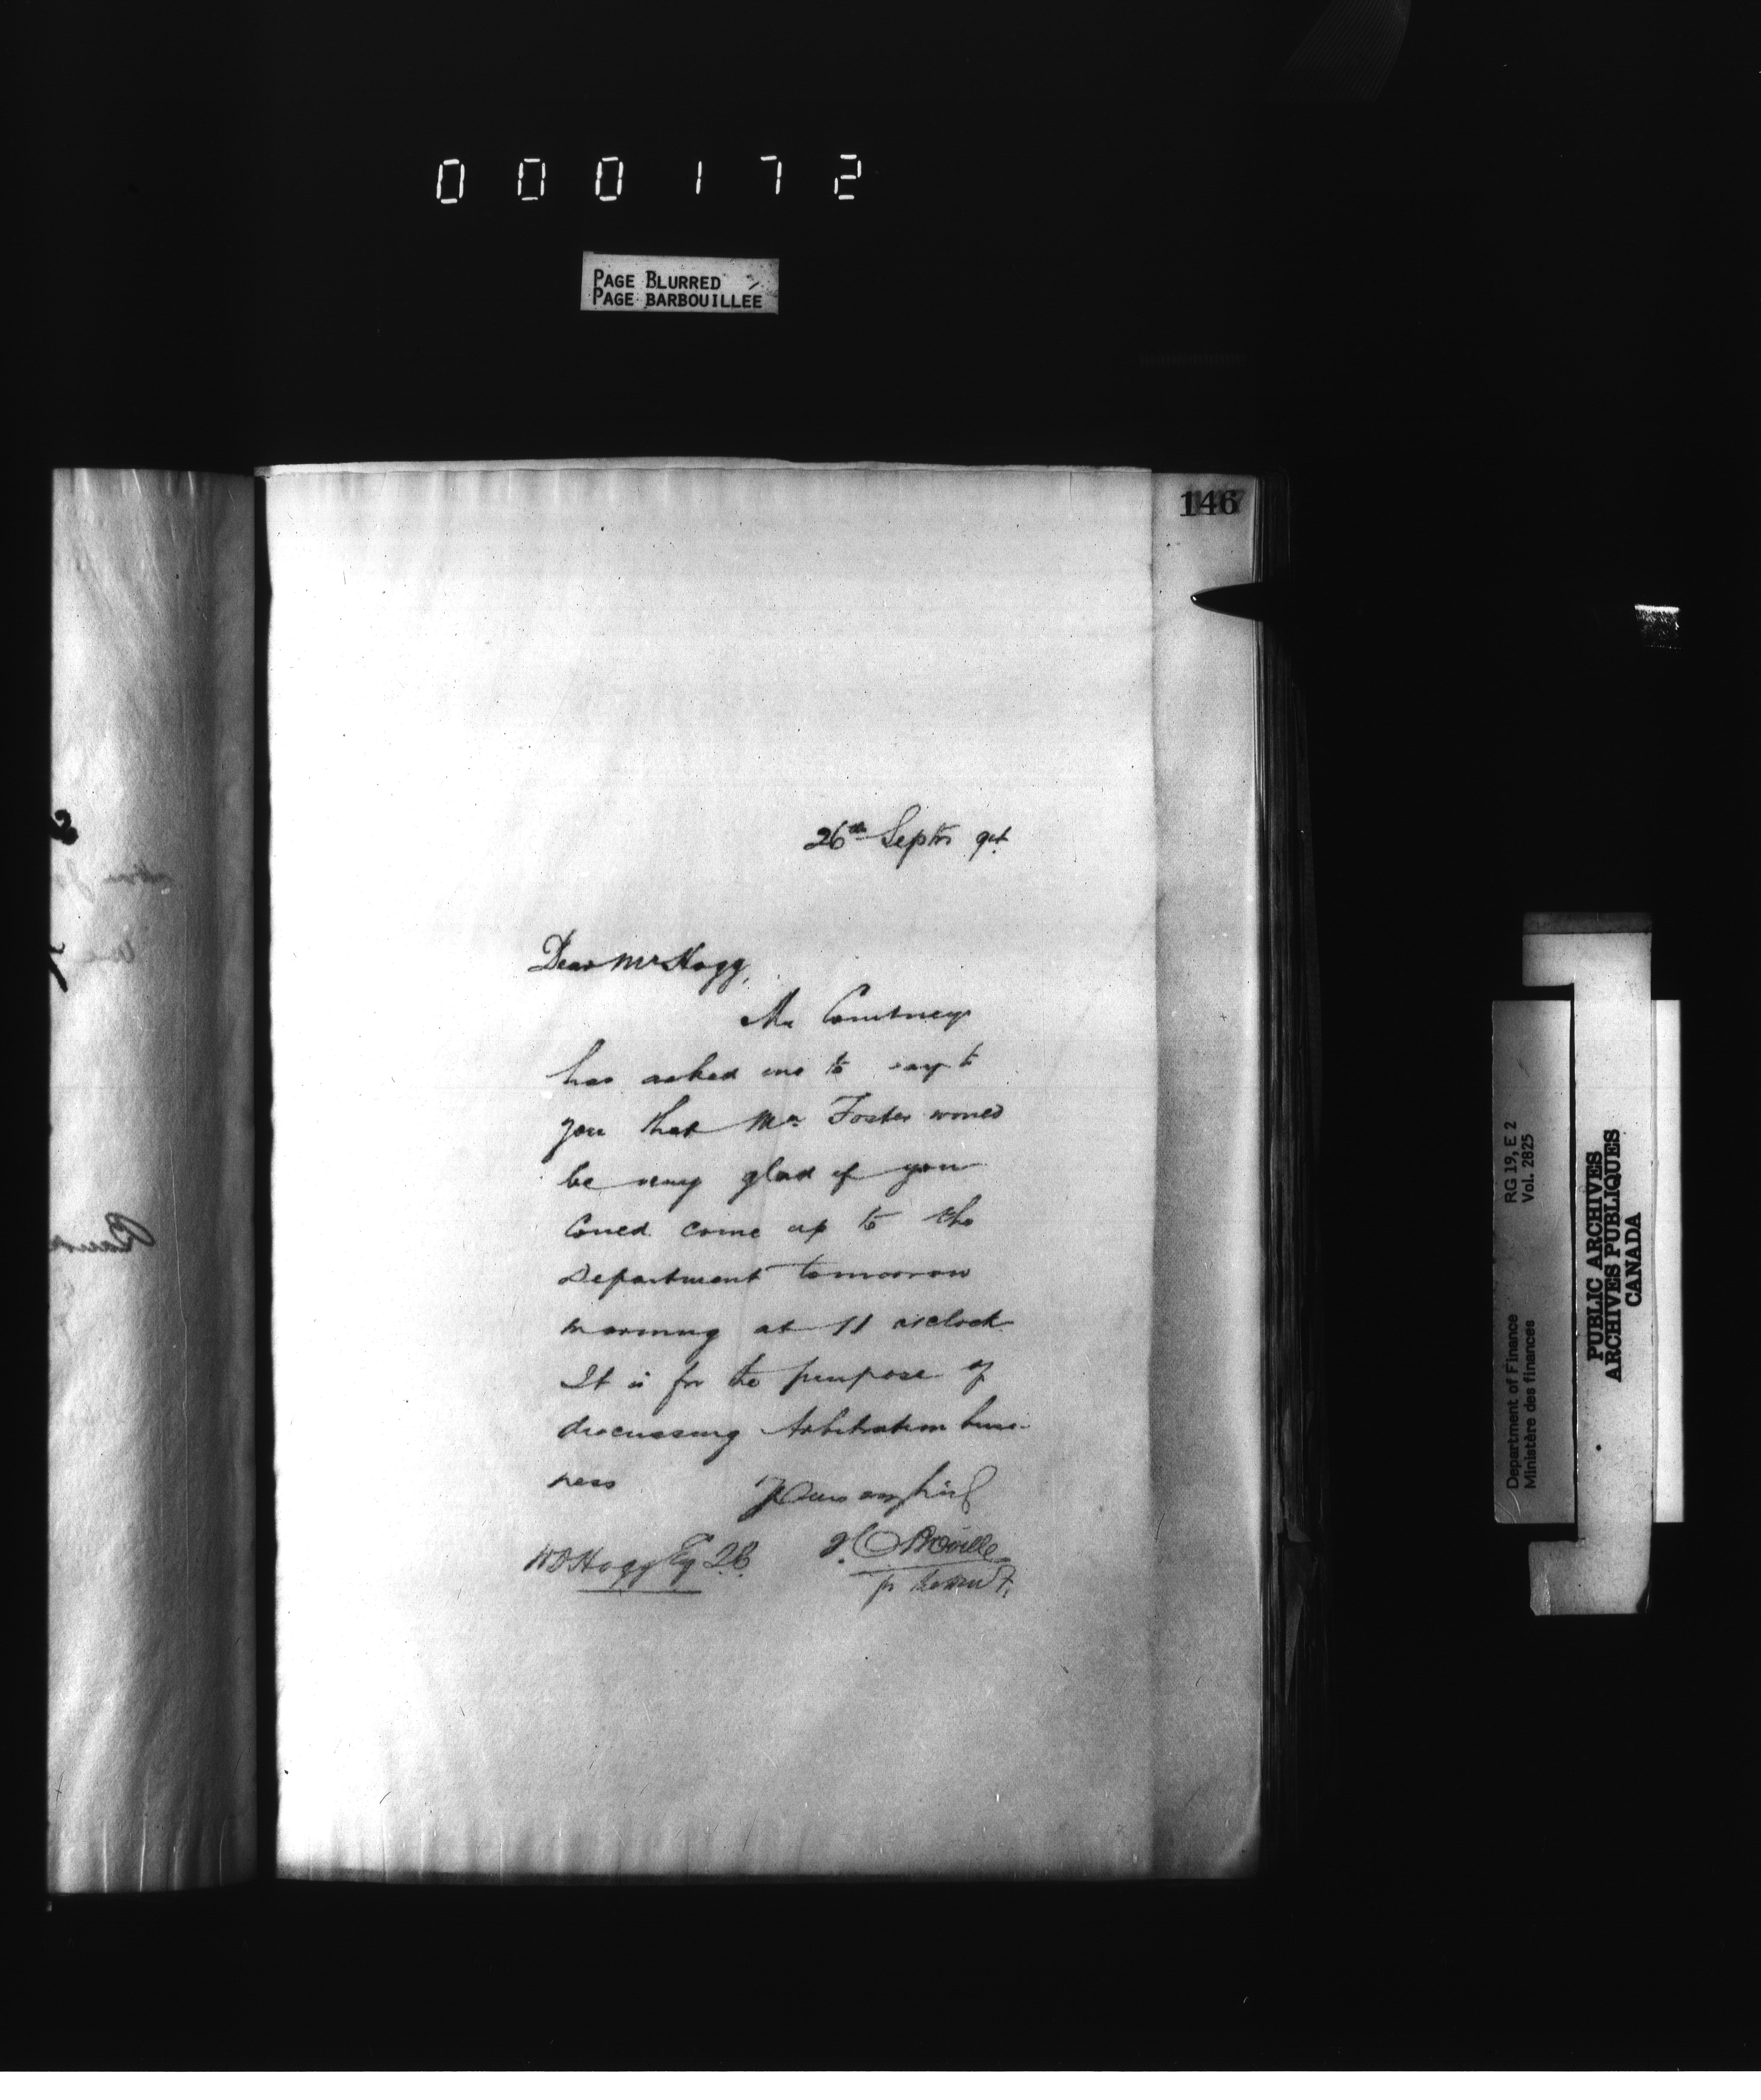 000172
PAGE BLURRED
PAGE BARBOUILLEE
146
26th Septr
Dear Mr Hogg,
Mr Courtney
has asked me to say to
you that Mr Foster would
be very glad if you
could come up to the
Department tomorrow
morning at 11 o'clock
It is for the purpose of
discussing Arbitration busi-
ness
Yours very truly
W D Hogg Esq Q.C.
Department of Finance RG 19, E 2
Ministère des finances Vol. 2825
PUBLIC ARCHIVES
ARCHIVES PUBLIQUES
CANADA